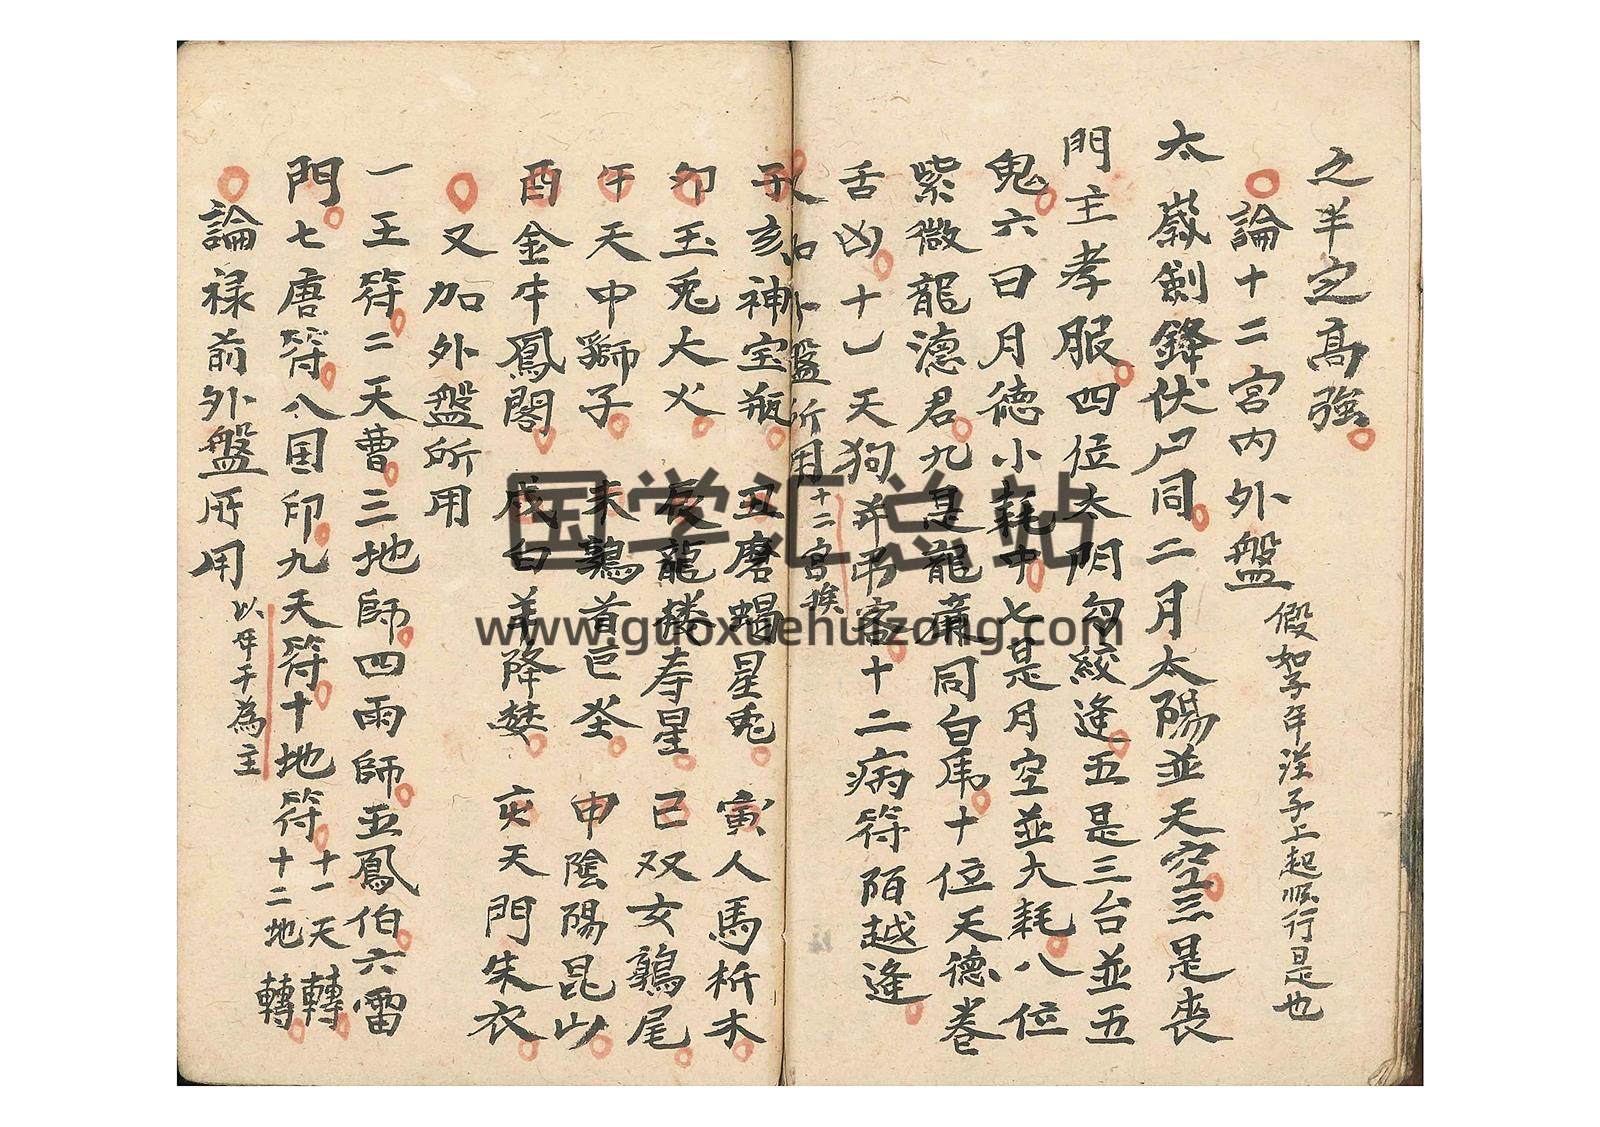 之半定高強
論十二宮內外盤 假如子年從子上起順行是也
太歲劍鋒伏尸同二月太陽並天空三是喪
門主孝服四位太陰勾絞逢五是三台並五
鬼六日月德小耗中七是月空並大耗八位
紫微龍德君九是龍蒲同白虎十位天德卷
舌凶十一天狗并吊客十二病符陌越逢
又加外盤所用十二宮挨
子亥神宝瓶 丑磨蝎星兎 寅人馬析木
卯玉兎大火 辰龍楼寿星 巳双女鶉尾
午天中獅子 未鶉首巨 申陰陽昆山
酉金牛鳳閣 戌白羊降婪 亥天門朱衣
又加外盤所用
一王符二天曹三地師四雨師五鳳伯六雷
門七唐符八国印九天符十地符十一天轉十二地轉
論禄前外盤所用 以年干為主
国学汇总站
www.guoxuehuizong.com